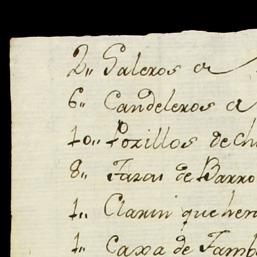 2,, Saleros a
6,, Candeleros a
10,, Pozillos de ch
8,, Tazas de Barro
1,, Clarin que heri
1,, Caxa de Tamb